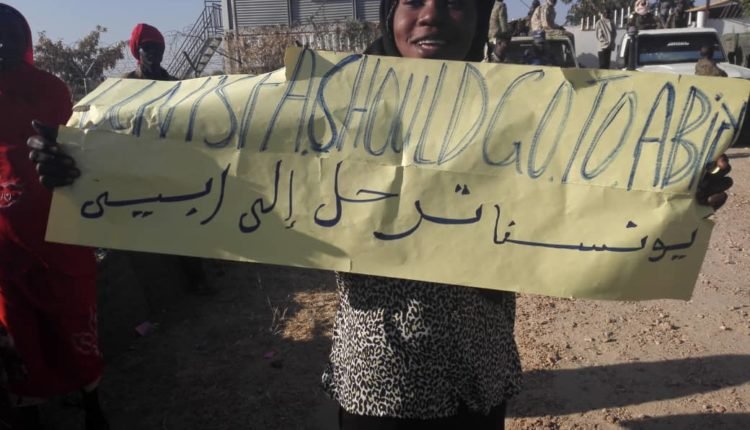 UNISFA. SHOULD GO. TO. ABIY
يونسفا ترحل إلى ابيي